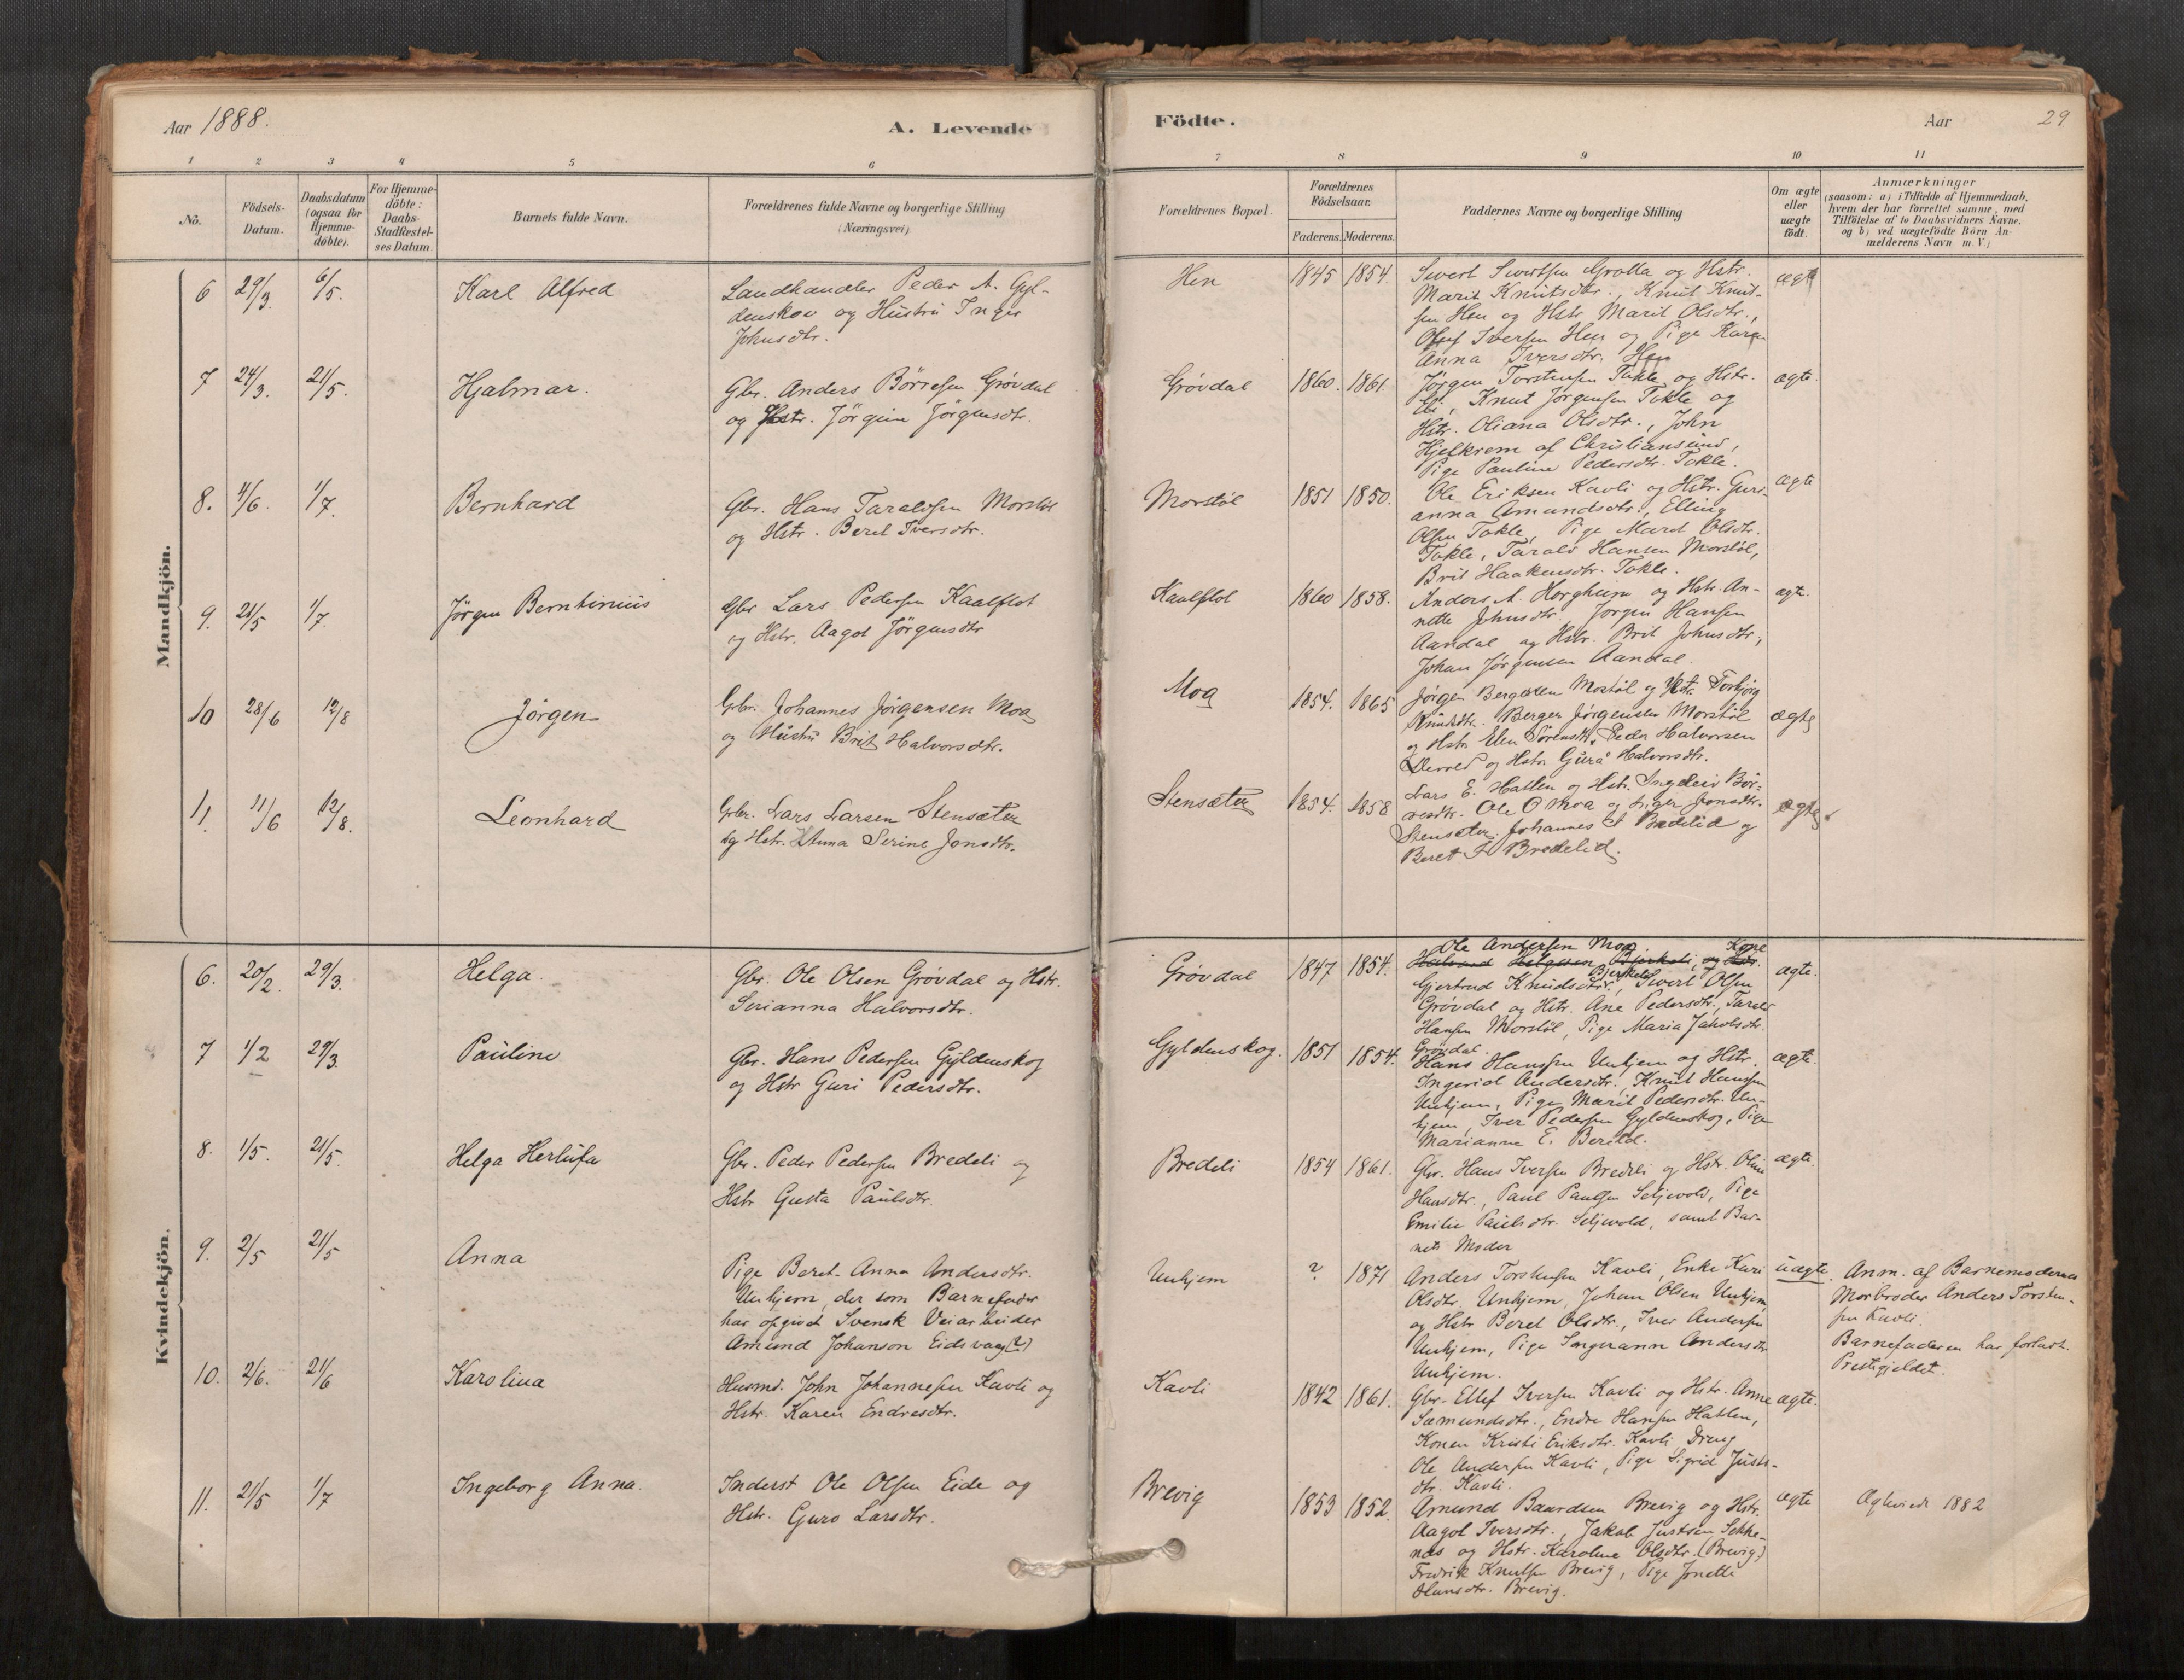 Aar 1888.
A. Levende
1 2 3 4 5 6
Nò.
Födsels-
Datum.
Daabsdatum
(ogsaa for
Hjemme-
döbte).
For Hjemme-
döbte:
Daabs-
Stadfæstel-
ses Datum.
Barnets fulde Navn.
Forældrenes fulde Navne og borgerlige Stilling
(Næringsvei).
Mandkjön.
6 29/3. 6/5. Karl Alfred
Landhandler Peder A. Gyl-
denskov og Hustru Inger
Johnsdtr.
7 24/3. 21/5. Hjalmar.
Gbr. Anders Börresen Grövdal
og Hstr. Jörgine Jörgensdtr.
8. 4/6. 1/7. Bernhard
Gbr. Hans Taraldsen Morstöl
og Hstr. Beret Iversdtr.
9. 21/5 1/7. Jörgen Berntinius
Gbr Lars Pedersen Kaalflot
og Hstr. Aagot Jörgensdtr
10 28/6 12/8 Jörgen
Gbr. Johannes Jörgensen Moa
og Hustru Brit Halvorsdtr.
11. 11/6 12/8. Leonhard
Gbr. Lars Larsen Stensæter
og Hstr. Anna Serine Jonsdtr.
Kvindekjön.
6. 20/2. 29/3. Helga.
Gbr. Ole Olsen Grövdal og Hstr.
Serianna Halvorsdtr.
7 1/2 29/3. Pauline
Gbr. Hans Pedersen Gyldenskog
og Hstr Guri Pedersdtr.
8. 1/5. 21/5. Helga Herlufa
Gbr. Peder Pedersen Bredeli og
Hstr Gusta Paulsdtr.
9. 2/5 21/5 Anna
Pige Beret-Anna Andersdtr.
Unhjem, der som Barnefader
har opgivet Svensk Veiarbeider
Amund Johanson Eidsvaag(?)
10. 2/6. 21/6 Karolina
Husmd. John Johannesen Kavli og
Hstr. Karen Endresdtr.
11. 21/5 1/7 Ingeborg Anna.
Inderst Ole Olsen Eide og
Hstr. Guro Larsdtr.
Födte.
Aar 29
7 8 9 10 11
Forældrenes Bopæl.
Forældrenes
Födselsaar.
Faderens. Moderens.
Faddernes Navne og borgerlige Stilling
Om ægte
eller
uægte
födt.
Anmærkninger
(saasom: a) i Tilfælde af Hjemmedaab,
hvem der har forrettet samme, med
Tilföielse af to Daabsvidners Navne,
og b) ved uægtefödte Börn An-
melderens Navn m. V.)
Hen 1845 1854. Sivert Sivertsen Grotta og Hstr. ægte
Marit Knutsdtr., Knut Knut-
sen Hen og Hstr Marit Olsdtr.,
Oluf Iversen Hen og Pige Karen
Anna Iversdtr. Hen
Grövdal 1860. 1861. Jörgen Torstensen Tokle og Hstr. ægte.
Eli, Knut Jörgensen Tokle og
Hstr. Oliana Olsdtr., John
Hjelkrem af Christiansund,
Pige Pauline Pedersdtr. Tokle.
Morstöl 1851 1850. Ole Eriksen Kavli og Hstr. Guri- ægte
anna Amundsdtr., Elling
Olsen Tokle, Pige Marit Olsdtr.
Tokle, Tarald Hansen Morstöl,
Brit Haakensdtr. Tokle.
Kaalflot 1860 1858. Anders A. Horgheim og Hstr. An- ægte.
nette Johnsdtr., Jörgen Hansen
Aandal og Hstr. Brit Johnsdtr.,
Johan Jörgensen Aandal.
Moa 1854. 1865 Jörgen Bergesen Morstöl og Hstr. Torbjörg
Knutsdtr. Berger Jörgensen Morstöl ægte
og Hstr Elen Sörensdtr. Peder Halvorsen
og Hstr. Gurå Halvorsdtr.
Stensæter 1854. 1858 Lars E. Hatlen og Hstr. Ingeleiv Bör-
resdtr. Ole O Moa og Inger Jonsdtr. ægte
Stensæter. Johannes I Bredelid og
Beret I Bredelid.
Ole Andersen Moa. Kone
Grövdal 1847 1854. Halvard Helgesen Bjerkeli, og Hstr. ægte.
Bjerkeli
Gjertrud Knudsdtr., Sivert Olsen
Grövdal og Hstr. Ane Pedersdtr., Tarald
Hansen Morstöl, Pige Maria Jakobsdtr.
Grövdal.
Gyldenskog. 1851 1854. Hans Hansen Unhjem og Hstr. ægte.
Ingerid Andersdtr., Knut Hansen
Unhjem, Pige Marit Pedersdtr. Un-
hjem, Iver Pedersen Gyldenskog, Pige
Marianna E. Berild.
Bredeli 1854 1861. Gbr. Hans Iversen Bredeli og Hstr. Oline ægte.
Hansdtr., Paul Paulsen Setjevold, Pige
Emilie Paulsdtr. Setjevold, samt Bar-
nets Moder
Unhjem ? 1871 Anders Torstensen Kavli, Enke Kari uægte. Anm. af Barnemoderens
Olsdtr. Unhjem, Johan Olsen Unhjem Morbroder Anders Torsten-
og Hstr Beret Olsdtr., Iver Andersen sen Kavli.
Unhjem, Pige Ingerann Andersdtr Barnefaderen har forladt
Unhjem. Prestegjeldet.
Kavli 1842 1861. Gbr. Ellef Iversen Kavli og Hstr. Anne ægte.
Sæmundsdtr., Endre Hansen Hatlen,
Konen Kristi Eriksdtr. Kavli, Dreng
Ole Andersen Kavli, Pige Sigrid Justs-
dtr. Kavli.
Brevig 1853 1852. Amund Baardsen Brevig og Hstr. ægte Ægteviede 1882
Aagot Iversdtr., Jakob Justsen Sekke-
næs og Hstr. Karoline Olsdtr. (Brevig)
Fredrik Knutsen Brevig, Pige Jonette
Hansdtr. Brevig.